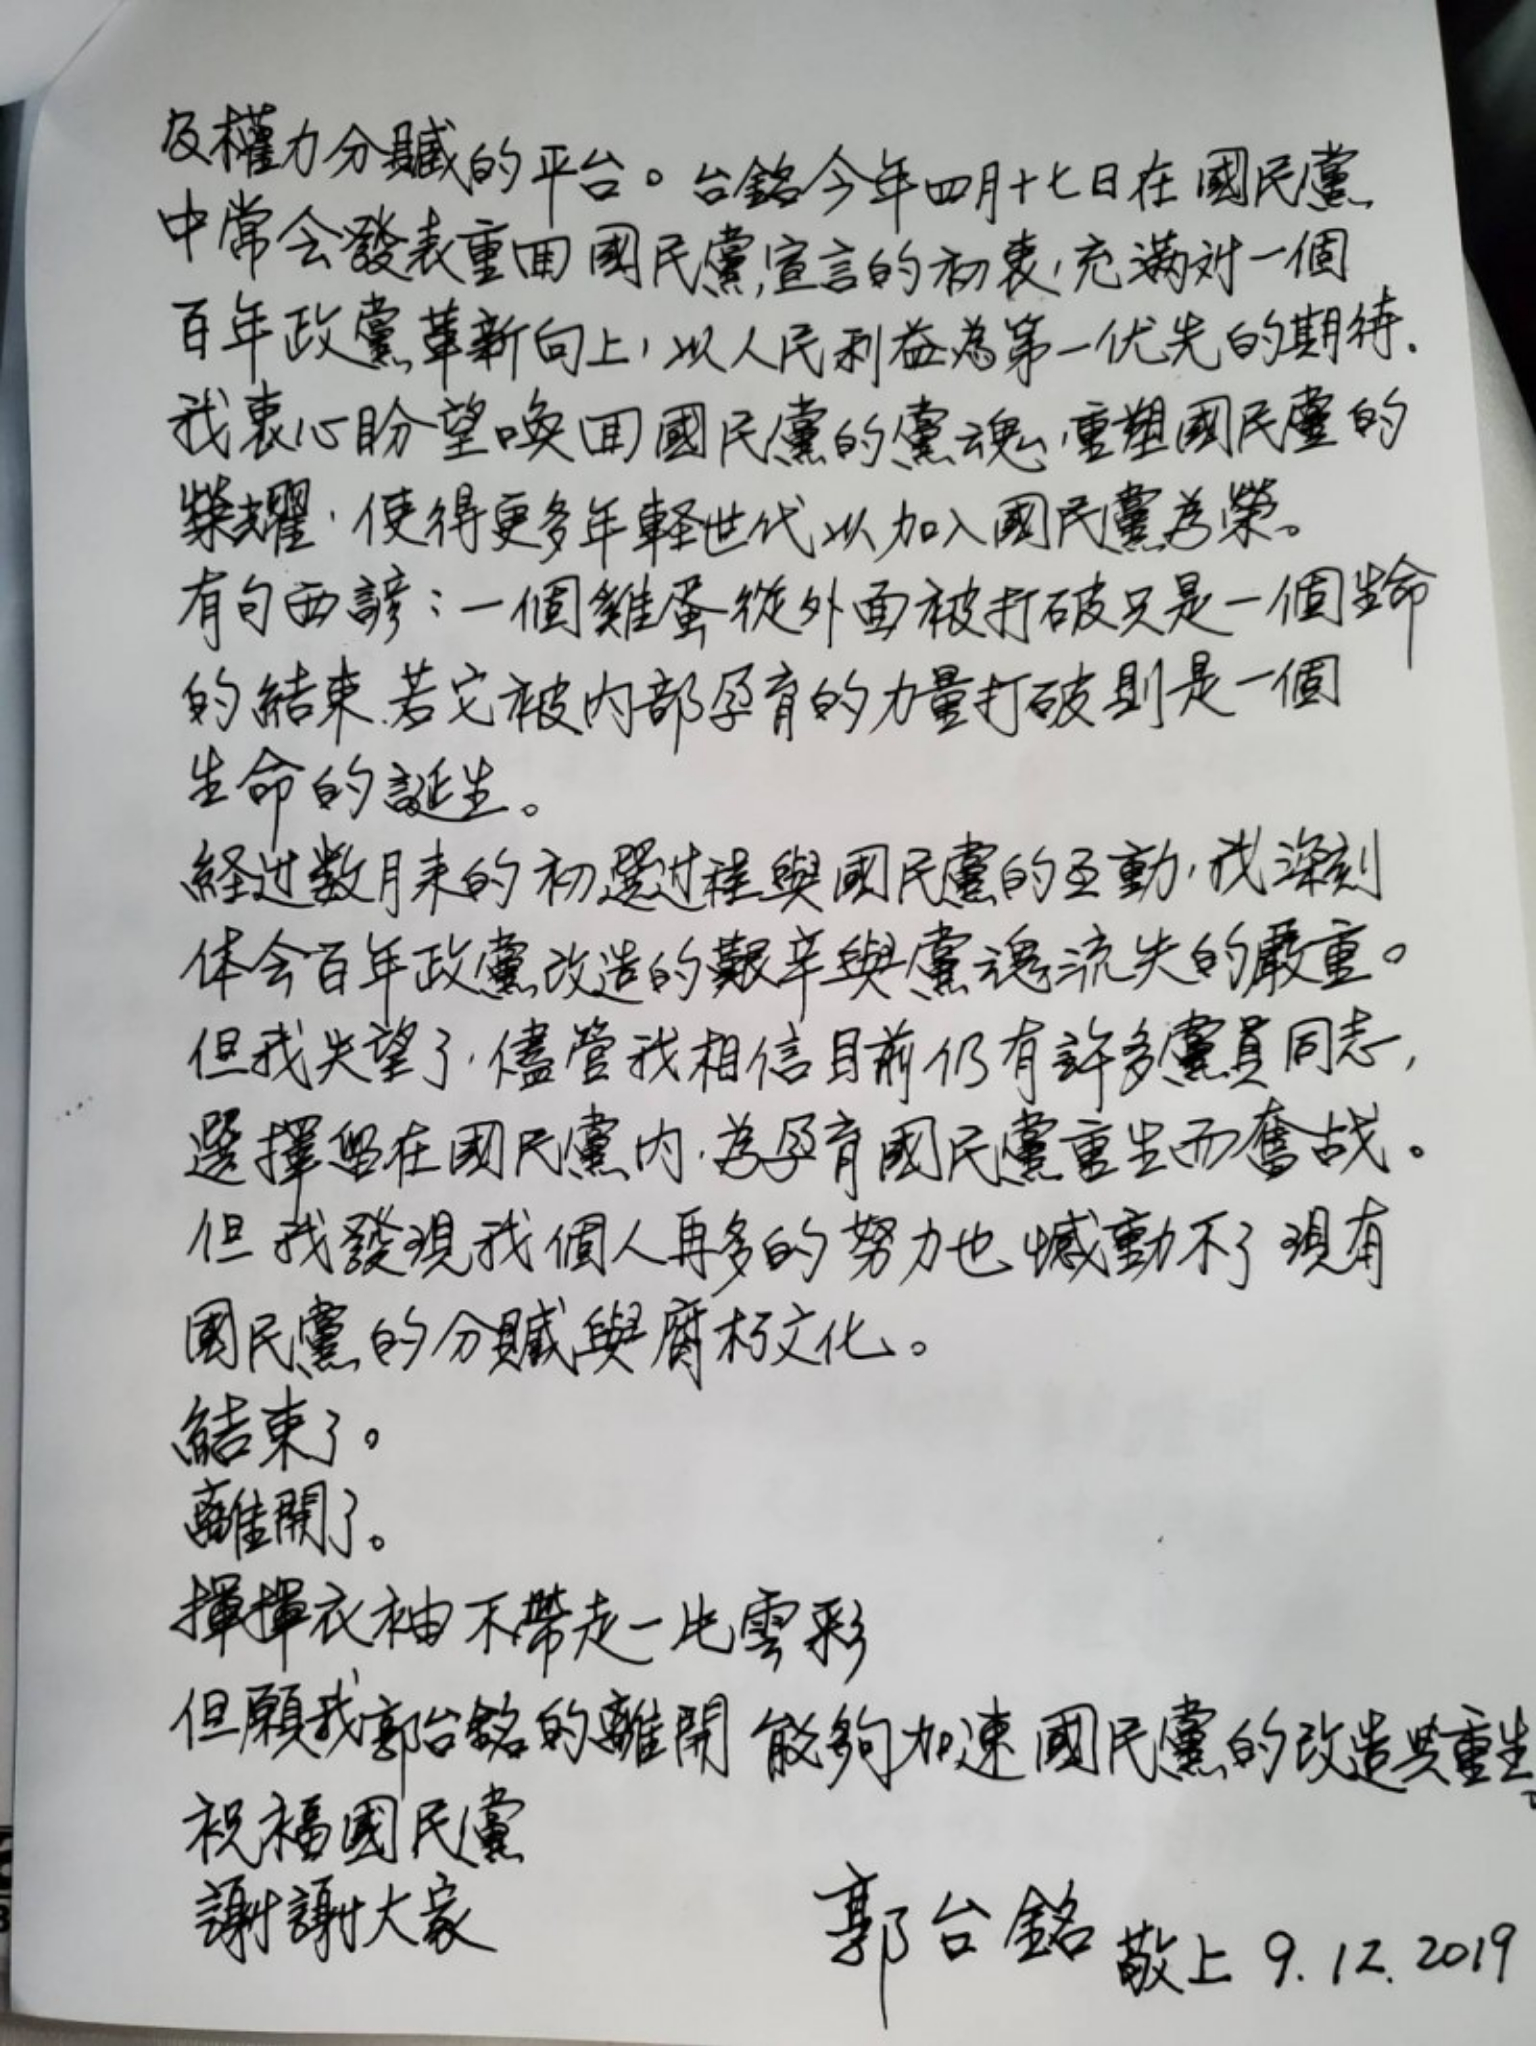 及權力分贓的平台。台銘今年四月十七日在國民黨
中常会發表重回國民黨宣言的初衷，充滿对一個
百年政黨革新向上，以人民利益為第一优先的期待.
我衷心盼望喚回國民黨的黨魂，重塑國民黨的
榮耀，使得更多年輕世代以加入國民黨為榮。
有句西諺：一個雞蛋從外面被打破只是一個生命
的結束、若它被內部孕育的力量打破則是一個
生命的誕生。
経过數月来的初選过程與國民黨的互動，我深刻
体会百年政黨改造的艱辛與黨魂流失的嚴重。
但我失望了，儘管我相信目前仍有許多黨員同志，
選擇留在國民黨內，為孕育國民黨重生而奮战。
但我發現我個人再多的努力也憾動不了現有
國民黨的分贓與腐朽文化。
結束了。
離開了。
揮揮衣袖不帶走一片雲彩
但願我郭台銘的離開能夠加速國民黨的改造與重生。
祝福國民黨
謝謝大家
郭台銘 敬上 9.12.2019